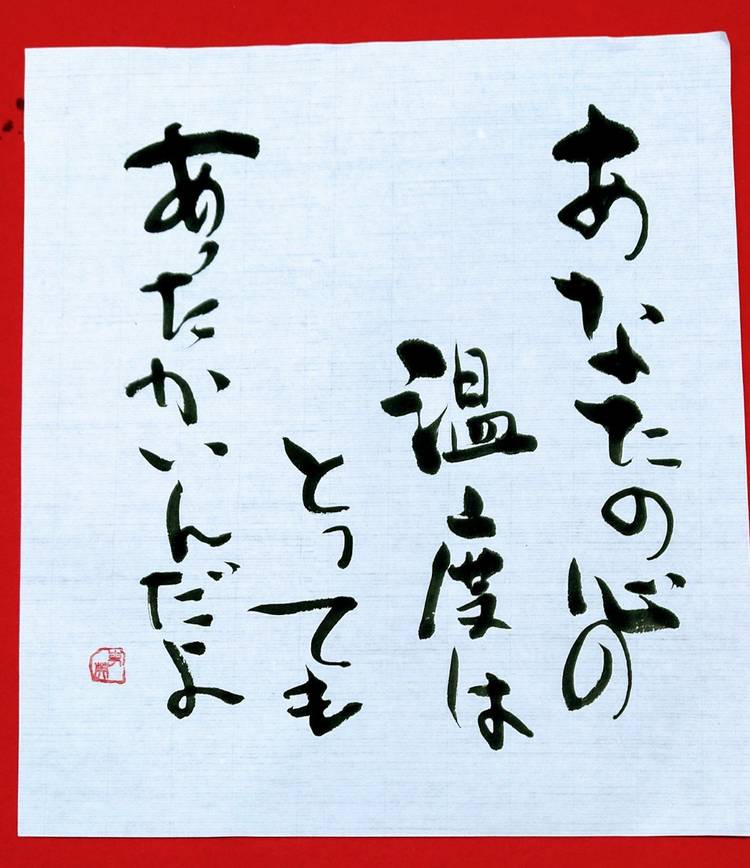 あなたの心の
温度は
とっても
あったかいんだよ